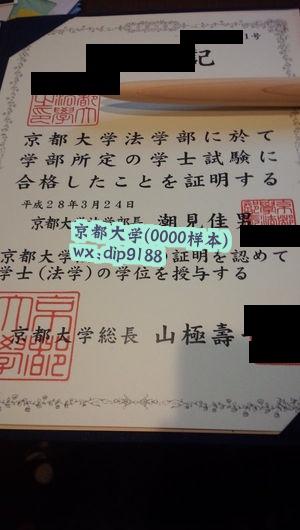 1号
記
京都大学法学部に於て
学部所定の学士試験に
合格したことを証明する
平成28年3月24日
京都大学法学部長 潮見佳男
京都大学(0000样本)
wx:dip9188
京都大 証明を認めて
学士(法学)の学位を授与する
京都大学総長 山極壽一